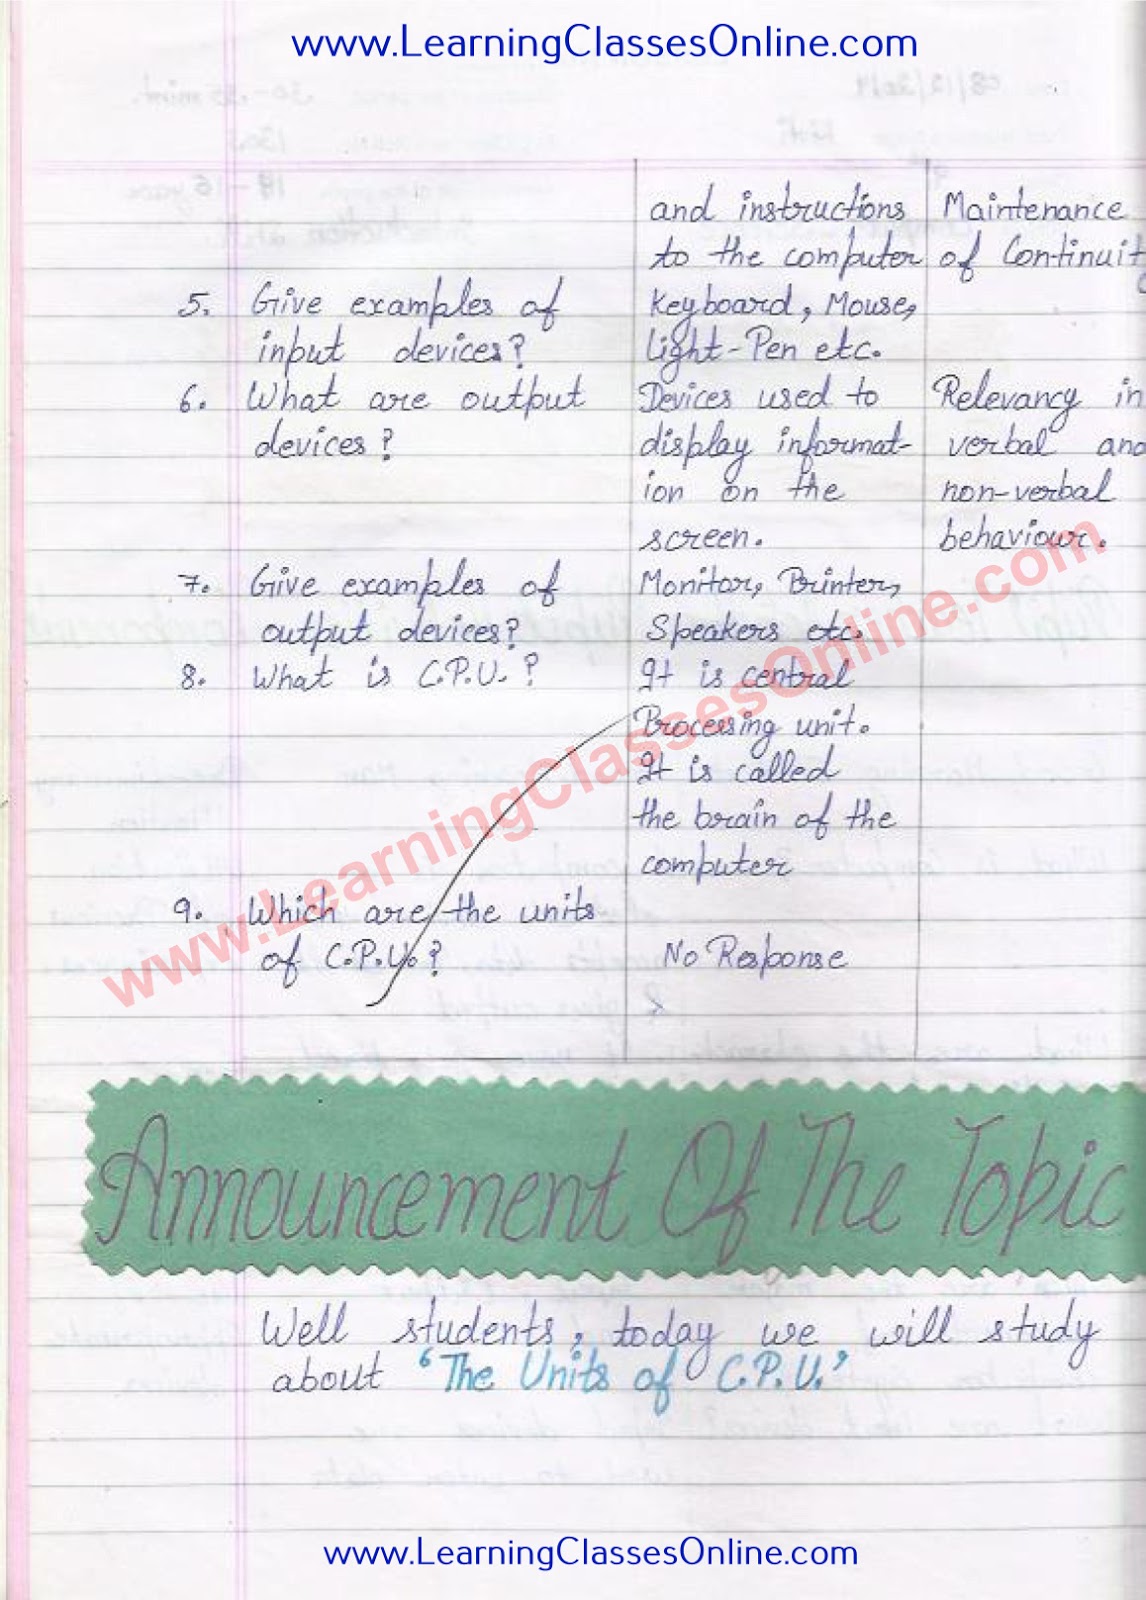 www.LearningClassesOnline.com
and instructions Maintenance
to the computer of Continuity
5. Give examples of Keyboard, Mouse,
input devices? Light-Pen etc.
6. What are output Devices used to Relevancy in
devices? display informat- verbal and
ion on the non-verbal
screen. behaviour.
7. Give examples of Monitor, Printer,
output devices? Speakers etc.
8. What is C.P.U.? It is central
Processing unit.
It is called
the brain of the
computer
9. Which are the units
of C.P.U.? No Response
www.LearningClassesOnline.com
Announcement Of The Topic
Well students, today we will study
about 'The Units of C.P.U.'
www.LearningClassesOnline.com